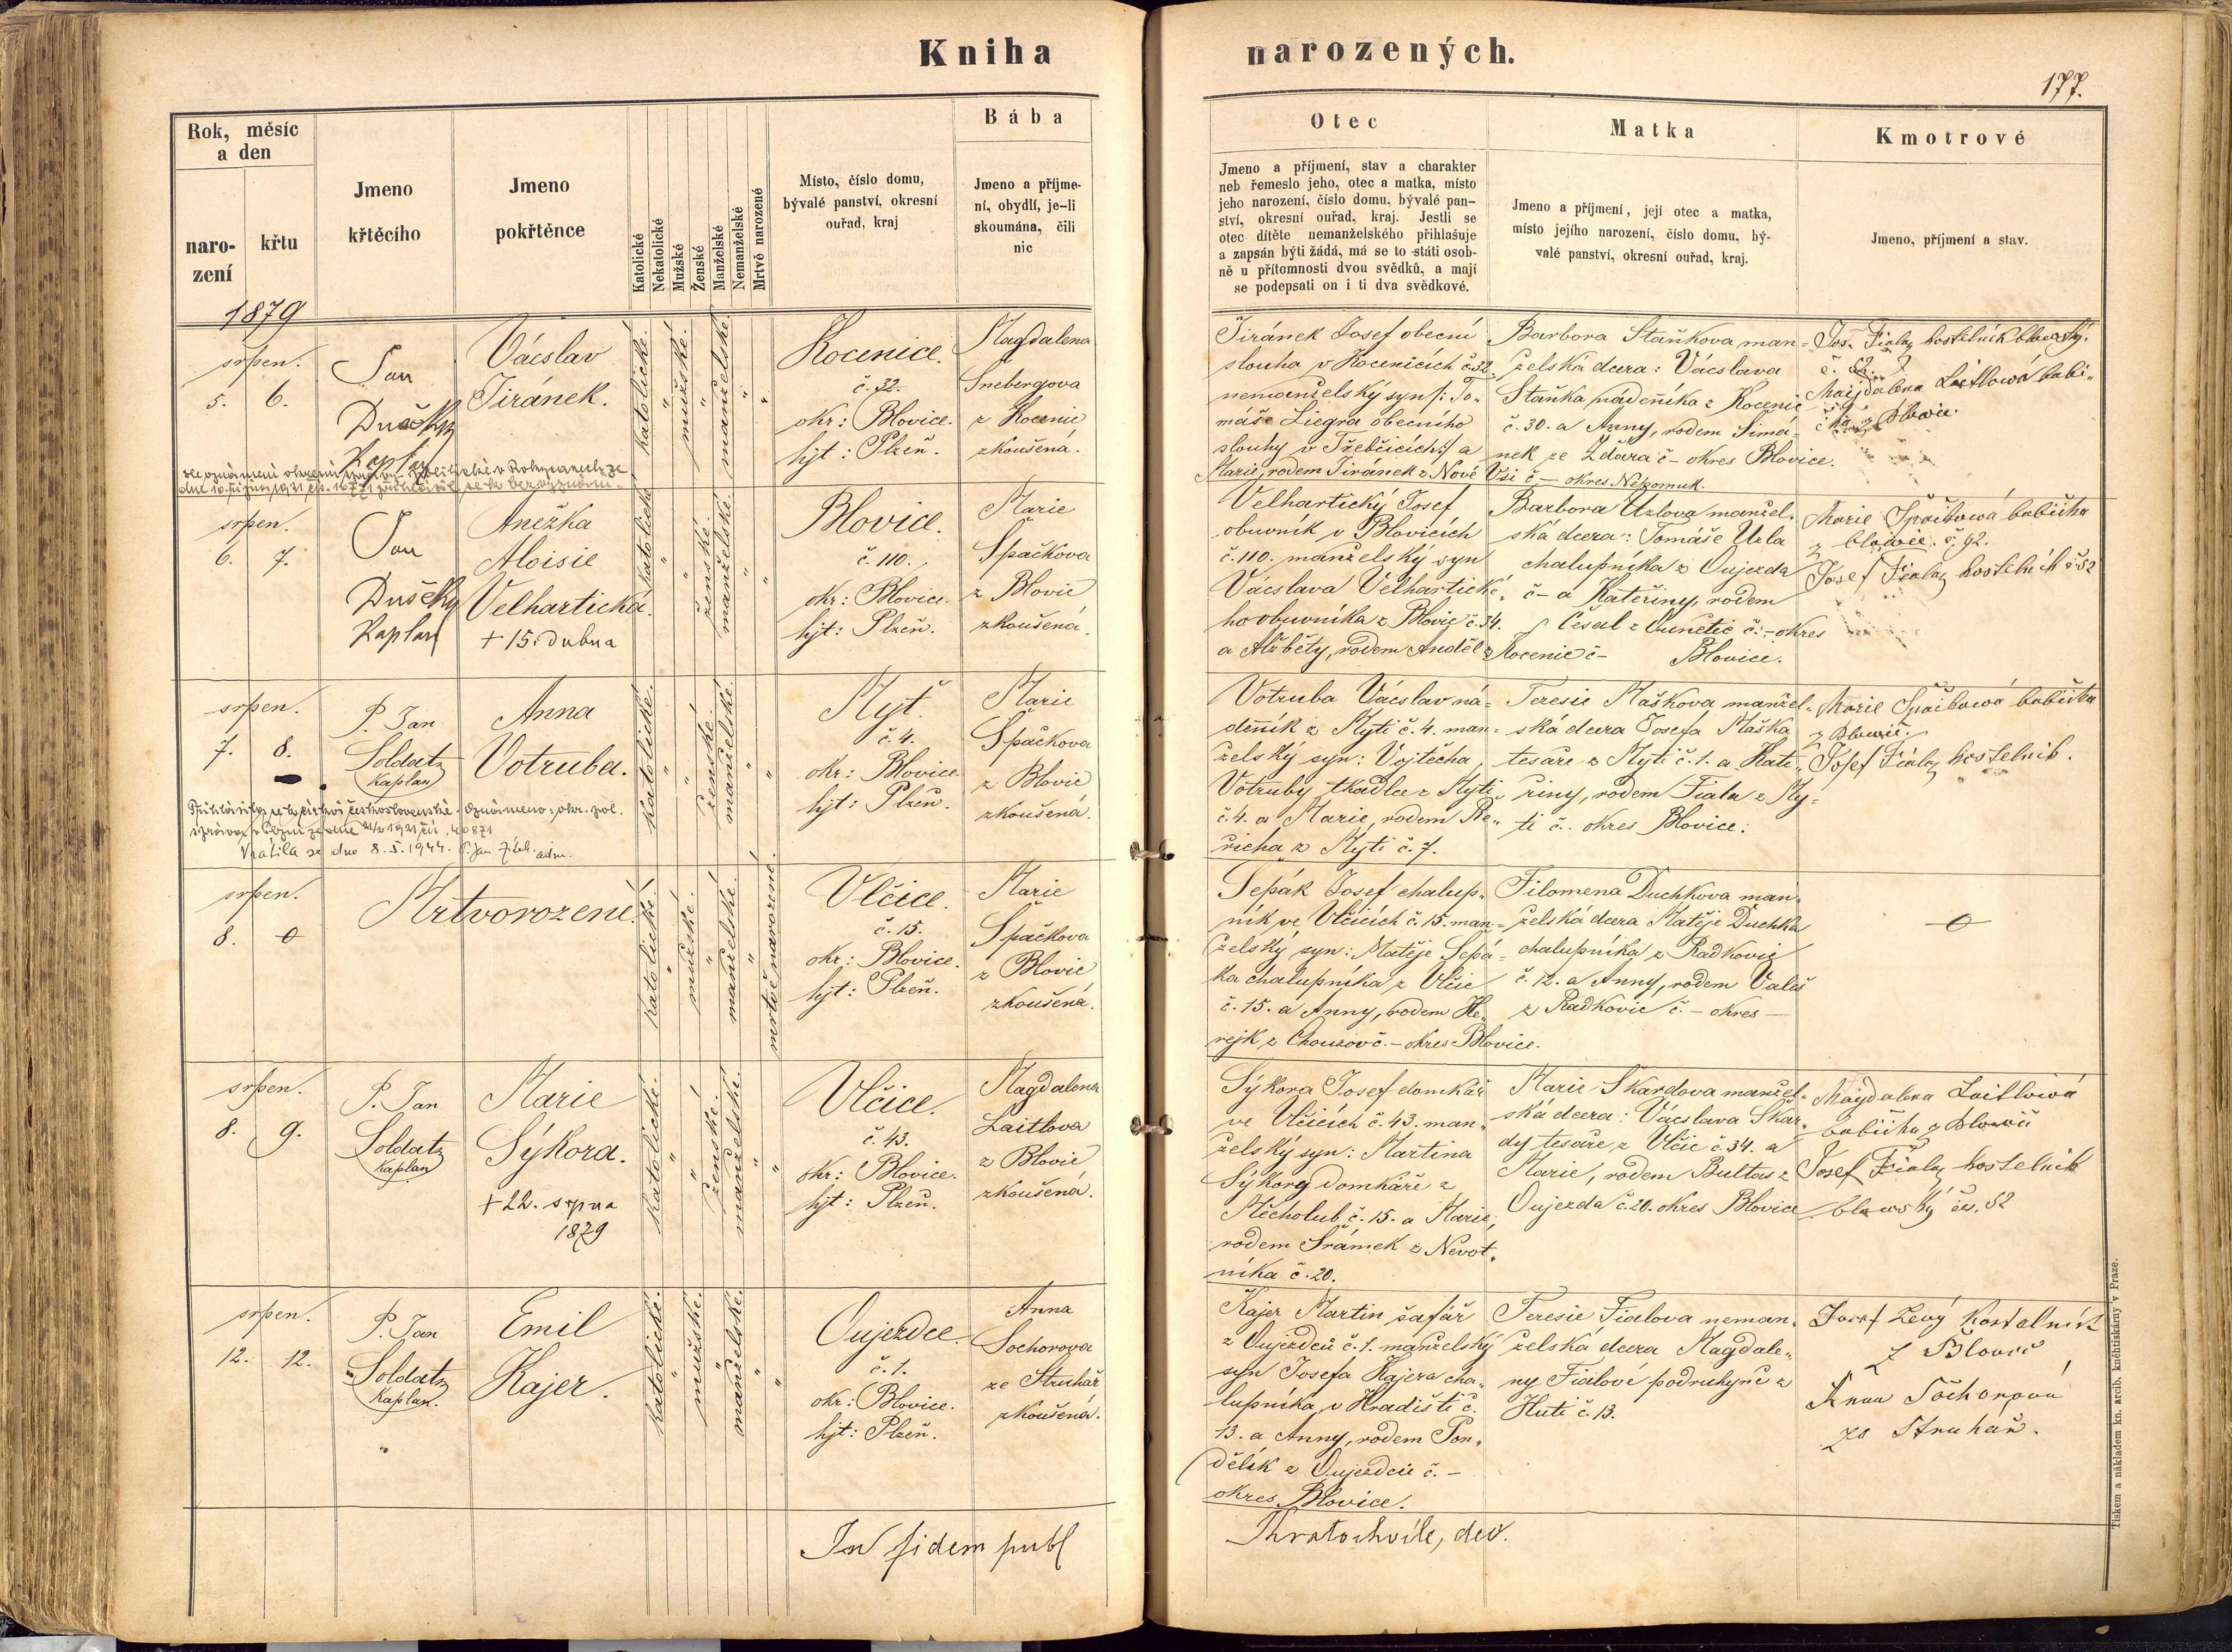 Kniha narozených.
177.
Rok, měsíc
a den
naro-
zení
křtu
Jmeno
křtěcího
Jmeno
pokřtěnce
Katolické
Nekatolické
Mužské
Ženské
Manželské
Nemanželské
Mrtvě narozené
Místo, číslo domu,
bývalé panství, okresní
ouřad, kraj
Bába
Jmeno a příjme-
ní, obydlí, je-li
skoumána, čili
nic
Otec
Jmeno a příjmení, stav a charakter
neb řemeslo jeho, otec a matka, místo
jeho narození, číslo domu, bývalé pan-
ství, okresní ouřad, kraj. Jestli se
otec dítěte nemanželského přihlašuje
a zapsán býti žádá, má se to státi osob-
ně u přítomnosti dvou svědků, a mají
se podepsati on i ti dva svědkové.
Matka
Jmeno a příjmení, její otec a matka,
místo jejího narození, číslo domu, bý-
valé panství, okresní ouřad, kraj.
Kmotrové
Jmeno, příjmení a stav.
1879
srpen.
5. 6.
Jan
Dušek
Kaplan
Vácslav
Jiránek.
katolické.
"
mužské.
"
manželské.
"
"
Kocenice.
č. 32.
okr: Blovice.
hjt: Plzeň.
Magdalena
Snebergova
z Kocenic
zkoušená.
Jiránek Josef obecní
slouha v Kocenicích č. 32.
nemanželský syn /: To-
máše Liegra obecního
slouhy v Třebčicích :/ a
Marie, rodem Jiránek z Nové Vsi č. – okres Nepomuk.
Barbora Staňkova man-
želská dcera: Vácslava
Staňka nádeníka z Kocenic
č. 30. a Anny, rodem Šimá-
nek ze Ždára č – okres Blovice.
Jos. Fiala kostelník
č. 52.
Majdalena Laitlowá babi-
srpen.
6. 7.
Jan
Dušek
Kaplan
Anežka
Aloisie
Velhartická.
+ 15. dubna
katolické
"
"
ženské.
manželské.
"
"
Blovice.
č. 110.
okr: Blovice.
hjt: Plzeň.
Marie
Spačkova
z Blovic
zkoušená.
Velhartický Josef
obuvník v Blovicích
č. 110. manželský syn
Vácslava Velhartické-
ho obuvníka z Blovic č. 34.
a Alžběty, rodem Anděl z Kocenic č –
Barbora Uzlova manžel-
ská dcera: Tomáše Uzla
chalupníka z Oujezda
č – a Kateřiny, rodem
Česal z Vunetic č. – okres
Blovice.
Marie Špačkowá babička
z Blowic. č. 92.
Josef Fiala kostelník č 52
srpen.
7. 8.
P. Jan
Soldat
Kaplan
Anna
Votruba.
katolické.
"
"
ženské.
manželské.
"
"
Mýť.
č. 4.
okr: Blovice.
hjt: Plzeň.
Marie
Spačkova
z Blovic
zkoušená.
Přihlásila se k církvi československé. Oznámeno okr. pol.
správou v Plzni ze dne 1921 čís. 40871
Vrátila se dne 8. 5. 1944. P. Jan adm.
Votruba Vácslav ná-
deník z Mýti č. 4. man-
želský syn: Vojtěcha
Votruby tkadlce z Mýti
č. 4. a Marie, rodem Re-
richa z Mýti č. 7.
Teresie Maškova manžel-
ská dcera Josefa Maška
tesaře z Mýti č. 1. a Kate-
řiny, rodem Fiala z Mý-
ti č. okres Blovice.
Marie Špačkowá babička
z Blowic.
Josef Fiala kostelník.
srpen.
8. 0
Mrtvorozené.
katolické.
"
mužské.
"
manželské.
"
mrtvě narozené.
Vlčice.
č. 15.
okr: Blovice.
hjt: Plzeň.
Marie
Spačkova
z Blovic
zkoušená.
Šepák Josef chalup-
ník ve Vlčicích č. 15. man-
želský syn: Matěje Šepá-
ka chalupníka z Vlčic
č. 15. a Anny, rodem He-
rejk z Chouzov č. – okres Blovice.
Filomena Duchkova man-
želská dcera Matěje Duchka
chalupníka z Radkovic
č. 12. a Anny, rodem Valeš
z Radkovic č. – okres –
0
srpen.
8. 9.
P. Jan
Soldat
Kaplan
Marie
Sýkora.
+ 22. srpna
1879
katolické.
"
"
ženské.
manželské.
"
"
Vlčice.
č. 43.
okr: Blovice.
hjt: Plzeň.
Magdalena
Laitlova
z Blovic
zkoušená.
Sýkora Josef domkář
ve Vlčicích č. 43. man-
želský syn: Martina
Sýkory domkáře z
Měcholub č. 15. a Marie,
rodem Šrámek z Nevot-
níka č. 20.
Marie Škardova manžel-
ská dcera: Vácslava Škar-
dy tesaře z Vlčic č. 34. a
Marie, rodem Bultas z
Oujezda č. 20. okres Blovice
Majdalena Laitlowá
babička z Blowic
Josef Fiala kostelník
blowský čís. 52
srpen.
12. 12.
P. Jan
Soldat
Kaplan.
Emil
Kajer.
katolické.
"
mužské.
"
manželské.
"
"
Oujezdce.
č. 1.
okr: Blovice.
hjt: Plzeň.
Anna
Sochorova
ze Struhař
zkoušená.
Kajer Martin šafář
z Oujezdců č. 1. manželský
syn Josefa Kajera cha-
lupníka v Hradišti č.
13. a Anny, rodem Pon-
dělík z Oujezdců č. –
okres Blovice.
Teresie Fialova neman-
želská dcera Magdale-
ny Fialové podruhyně z
Huti č. 13.
Josef Lewý Kostelník
z Blowic
Anna Sochorowá
ze Struhař.
In fidem publ
Kratochvíle, děk.
Tiskem a nákladem kn. arcib. kněhtiskárny v Praze.